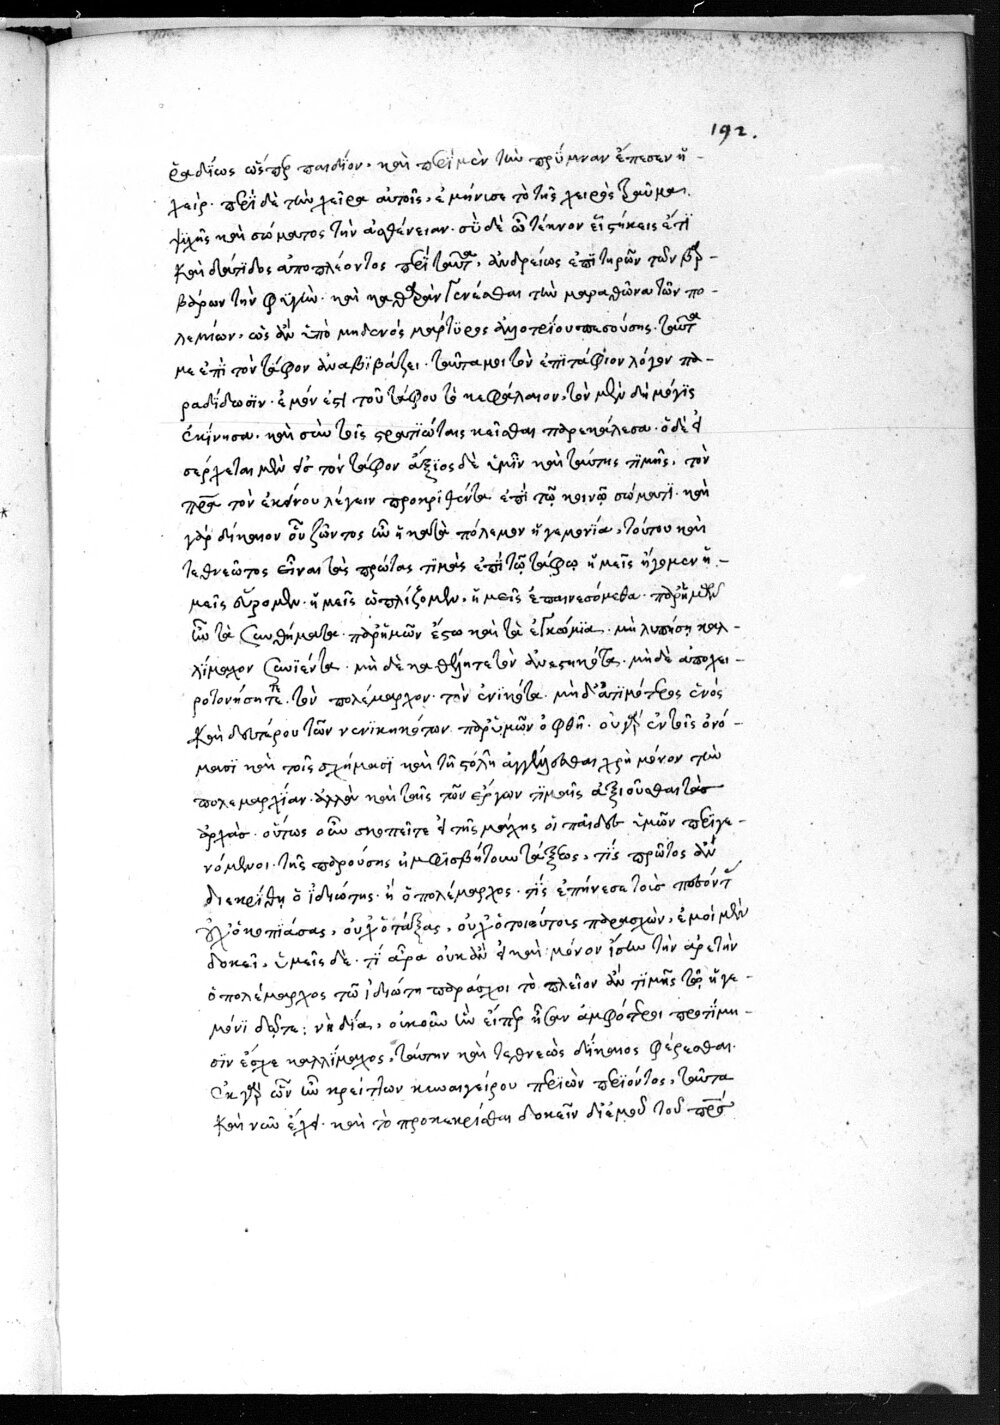 192.
ῥαδίως ὥσπερ παιδίον. καὶ περὶ μὲν τὴν πρύμναν ἔπεσεν ἡ
χεὶρ. περὶ δὲ τὴν χεῖρα αὐτὸς, ἐμήνισε τὸ τῆς χειρὸς τραῦμα.
ψυχῆς καὶ σώματος τὴν ἀσθένειαν. σὺ δὲ ὦ τέκνον εἱστήκεις ἔτι
καὶ δάτιδος ἀποπλέοντος περὶ ταῦτα, ἀνδρείως ἐπιτηρῶν τῶν βαρ-
βάρων τὴν φυγὴν. καὶ καθορᾶν γενέσθαι τὴν μαραθῶνα τῶν πο-
λεμίων, ὡς ἂν ὑπὸ μηδενός μάρτυρος ἀλλοτρίου πεσούσης. ταῦτα
με ἐπὶ τὸν τάφον ἀναβιβάζει. ταῦτα μοι τὸν ἐπιτάφιον λόγον πα-
ραδίδωσιν. ἐμόν ἐστι τοῦ τάφου τὸ κεφάλαιον, τὸν μὲν δὴ μόγις
ἐκίνησα. καὶ σὺν τοῖς στρατιώταις κεῖσθαι παρεκάλεσα. ὁ δὲ
σέρχεται μὲν εἰς τὸν τάφον ἄξιος δὲ ὑμῖν καὶ ταύτης τιμῆς. τὸν
πρα τὸν ἐκείνου λέγειν προκριθέντα ἐπὶ τῷ κοινῷ σώματι. καὶ
γὰρ δίκαιον οὗ ζῶντος ἦν ἡ κατὰ πόλεμον ἡγεμονία, τούτου καὶ
τεθνεῶτος εἶναι τὰς πρώτας τιμὰς ἐπὶ τῷ τάφῳ ἡμεῖς ἤγομεν ἡ-
μεῖς ηὕρομεν. ἡμεῖς ὡπλίζομεν. ἡμεῖς ἐπαινεσόμεθα. παρ' ἡμῶν
ἦν τὰ συνθήματα. παρ' ἡμῶν ἔστω καὶ τὰ ἐγκώμια. μὴ λυπήσῃ καλ-
λίμαχον συνιέντα. μὴ δὲ καθέλητε τὸν ἀνεστηκότα. μὴ δὲ ἀποχει-
ροτονήσητε τὸν πολέμαρχον. τὴν ἐνικότα. μὴ δ' ἀτιμότερος ἑνός
καὶ δευτέρου τῶν νενικηκότων παρ' ὑμῶν ὀφθῇ. οὐ γὰρ ἐν τοῖς ὀνό-
μασι καὶ τοῖς σχήμασι καὶ τῇ στολῇ ἀγγέλλεσθαι χρὴ μόνον τὴν
πολεμαρχίαν. ἀλλὰ καὶ ταῖς τῶν ἔργων τιμαῖς ἀξιοῦσθαι τὰς
ἀρχὰς. οὕτως οὖν σκοπεῖτε εἰ τῆς μάχης οἱ παῖδες ὑμῶν περιγε-
νόμενοι. τῆς παρούσης ἠμφισβήτουν τάξεως, τίς πρῶτος ἂν
διεκρίθη ὁ ἰδιώτης. ἢ ὁ πολέμαρχος. τίς ἐπήνεσα τοὺς πεσόντας
οὐχ ὁ κοπιάσας, οὐχ ὁ τάξας, οὐχ ὁ τοιούτοις παρασχὼν, ἐμοὶ μὲν
δοκεῖ. ὑμεῖς δὲ. τί ἆρα οὐκ ἂν εἰ καὶ μόνον ἴσην τὴν ἀρετὴν
ὁ πολέμαρχος τῷ ἰδιώτῃ παράσχοι τὸ πλεῖον ἂν τιμῆς τῷ ἡγε-
μόνι δῶτε; νὴ δία, οὐκοῦν ἣν εἴπερ ἦσαν ἀμφότεροι προτίμη-
σιν ἔσχε καλλίμαχος, ταύτην καὶ τεθνεὼς δίκαιος φέρεσθαι.
ἐκ γὰρ ὧν ἦν κρείττων κυναιγείρου περιὼν περιόντος, ταῦτα
καὶ νῦν ἔχει. καὶ τὸ προκεκρίσθαι δοκεῖν δι' ἐμοῦ τοῦ προσ